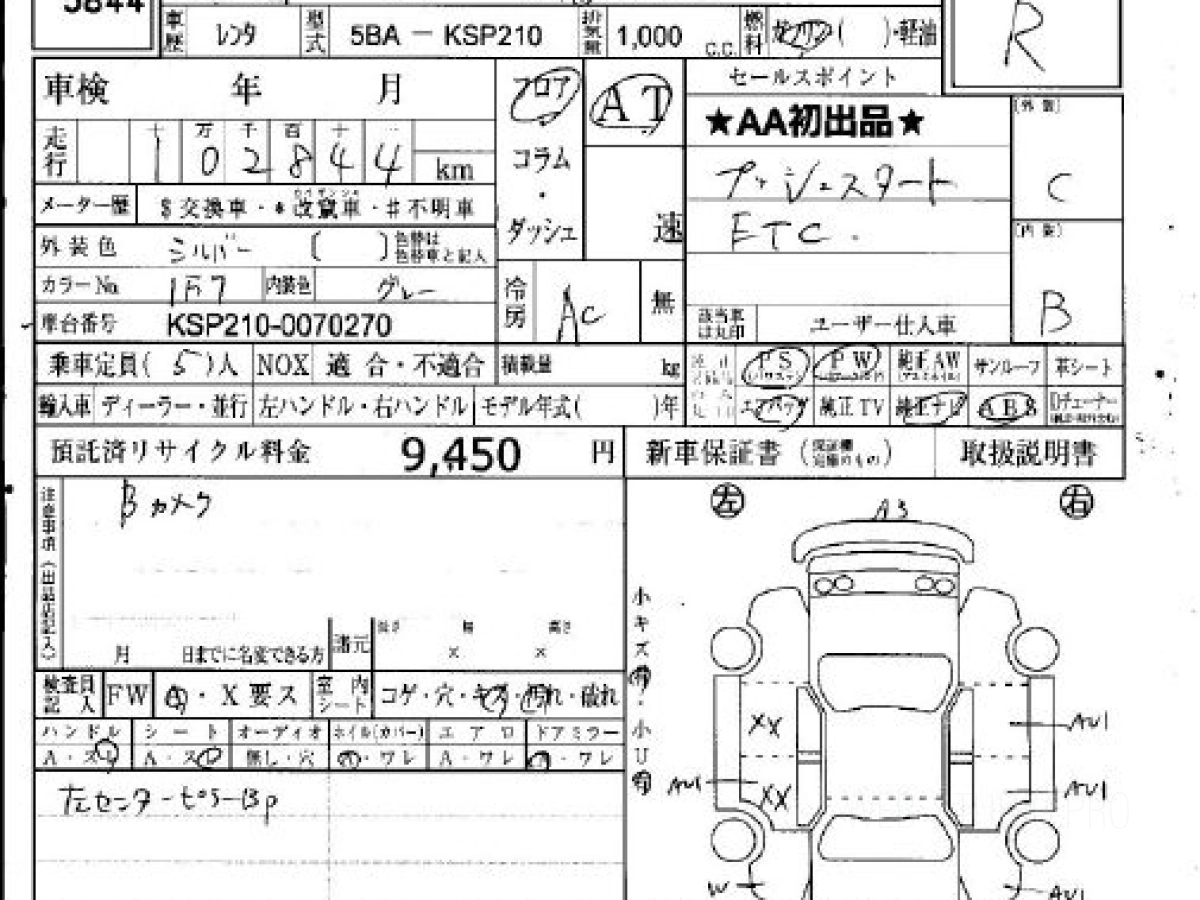 5844
車歴 レンタ 型式 5BA - KSP210 排気量 1,000 C.C. 燃料 ガソリン( )・軽油
R
車検 年 月
フロア AT
セールスポイント
★AA初出品★
プッシュスタート
ETC.
走行 十 万 千 百 十
1 0 2 8 4 4 km
コラム
・
ダッシュ
速
(外装)
C
メーター歴 $交換車・*改竄車・#不明車
外装色 シルバー ( ) 色替は色替車と記入
カラーNo. 1F7 内装色 グレー
冷房 AC 無
(内装)
B
車台番号 KSP210-0070270
該当車は丸印 ユーザー仕入車
乗車定員( 5 )人 NOX 適合・不適合 積載量 kg
PS PW 純正AW サンルーフ 革シート
輸入車 ディーラー・並行 左ハンドル・右ハンドル モデル年式( )年
エアバッグ 純正TV 純正ナビ ABS
預託済リサイクル料金 9,450 円
新車保証書 取扱説明書
注意事項(出品店記入)
Bカメラ
左 右
A3
月 日までに名変できる方 諸元 長さ 幅 高さ
× ×
検査員記入 FW ・X要ス 室内シート コゲ・穴・キズ・汚れ・破れ
ハンドル シート オーディオ ホイル(カバー) エアロ ドアミラー
A・スレ A・スレ 無し・穴 A・ワレ A・ワレ A・ワレ
小キズ有・小U有
左センターピラーBP
XX
XX
AU1
AU1
AU1
W
AU1